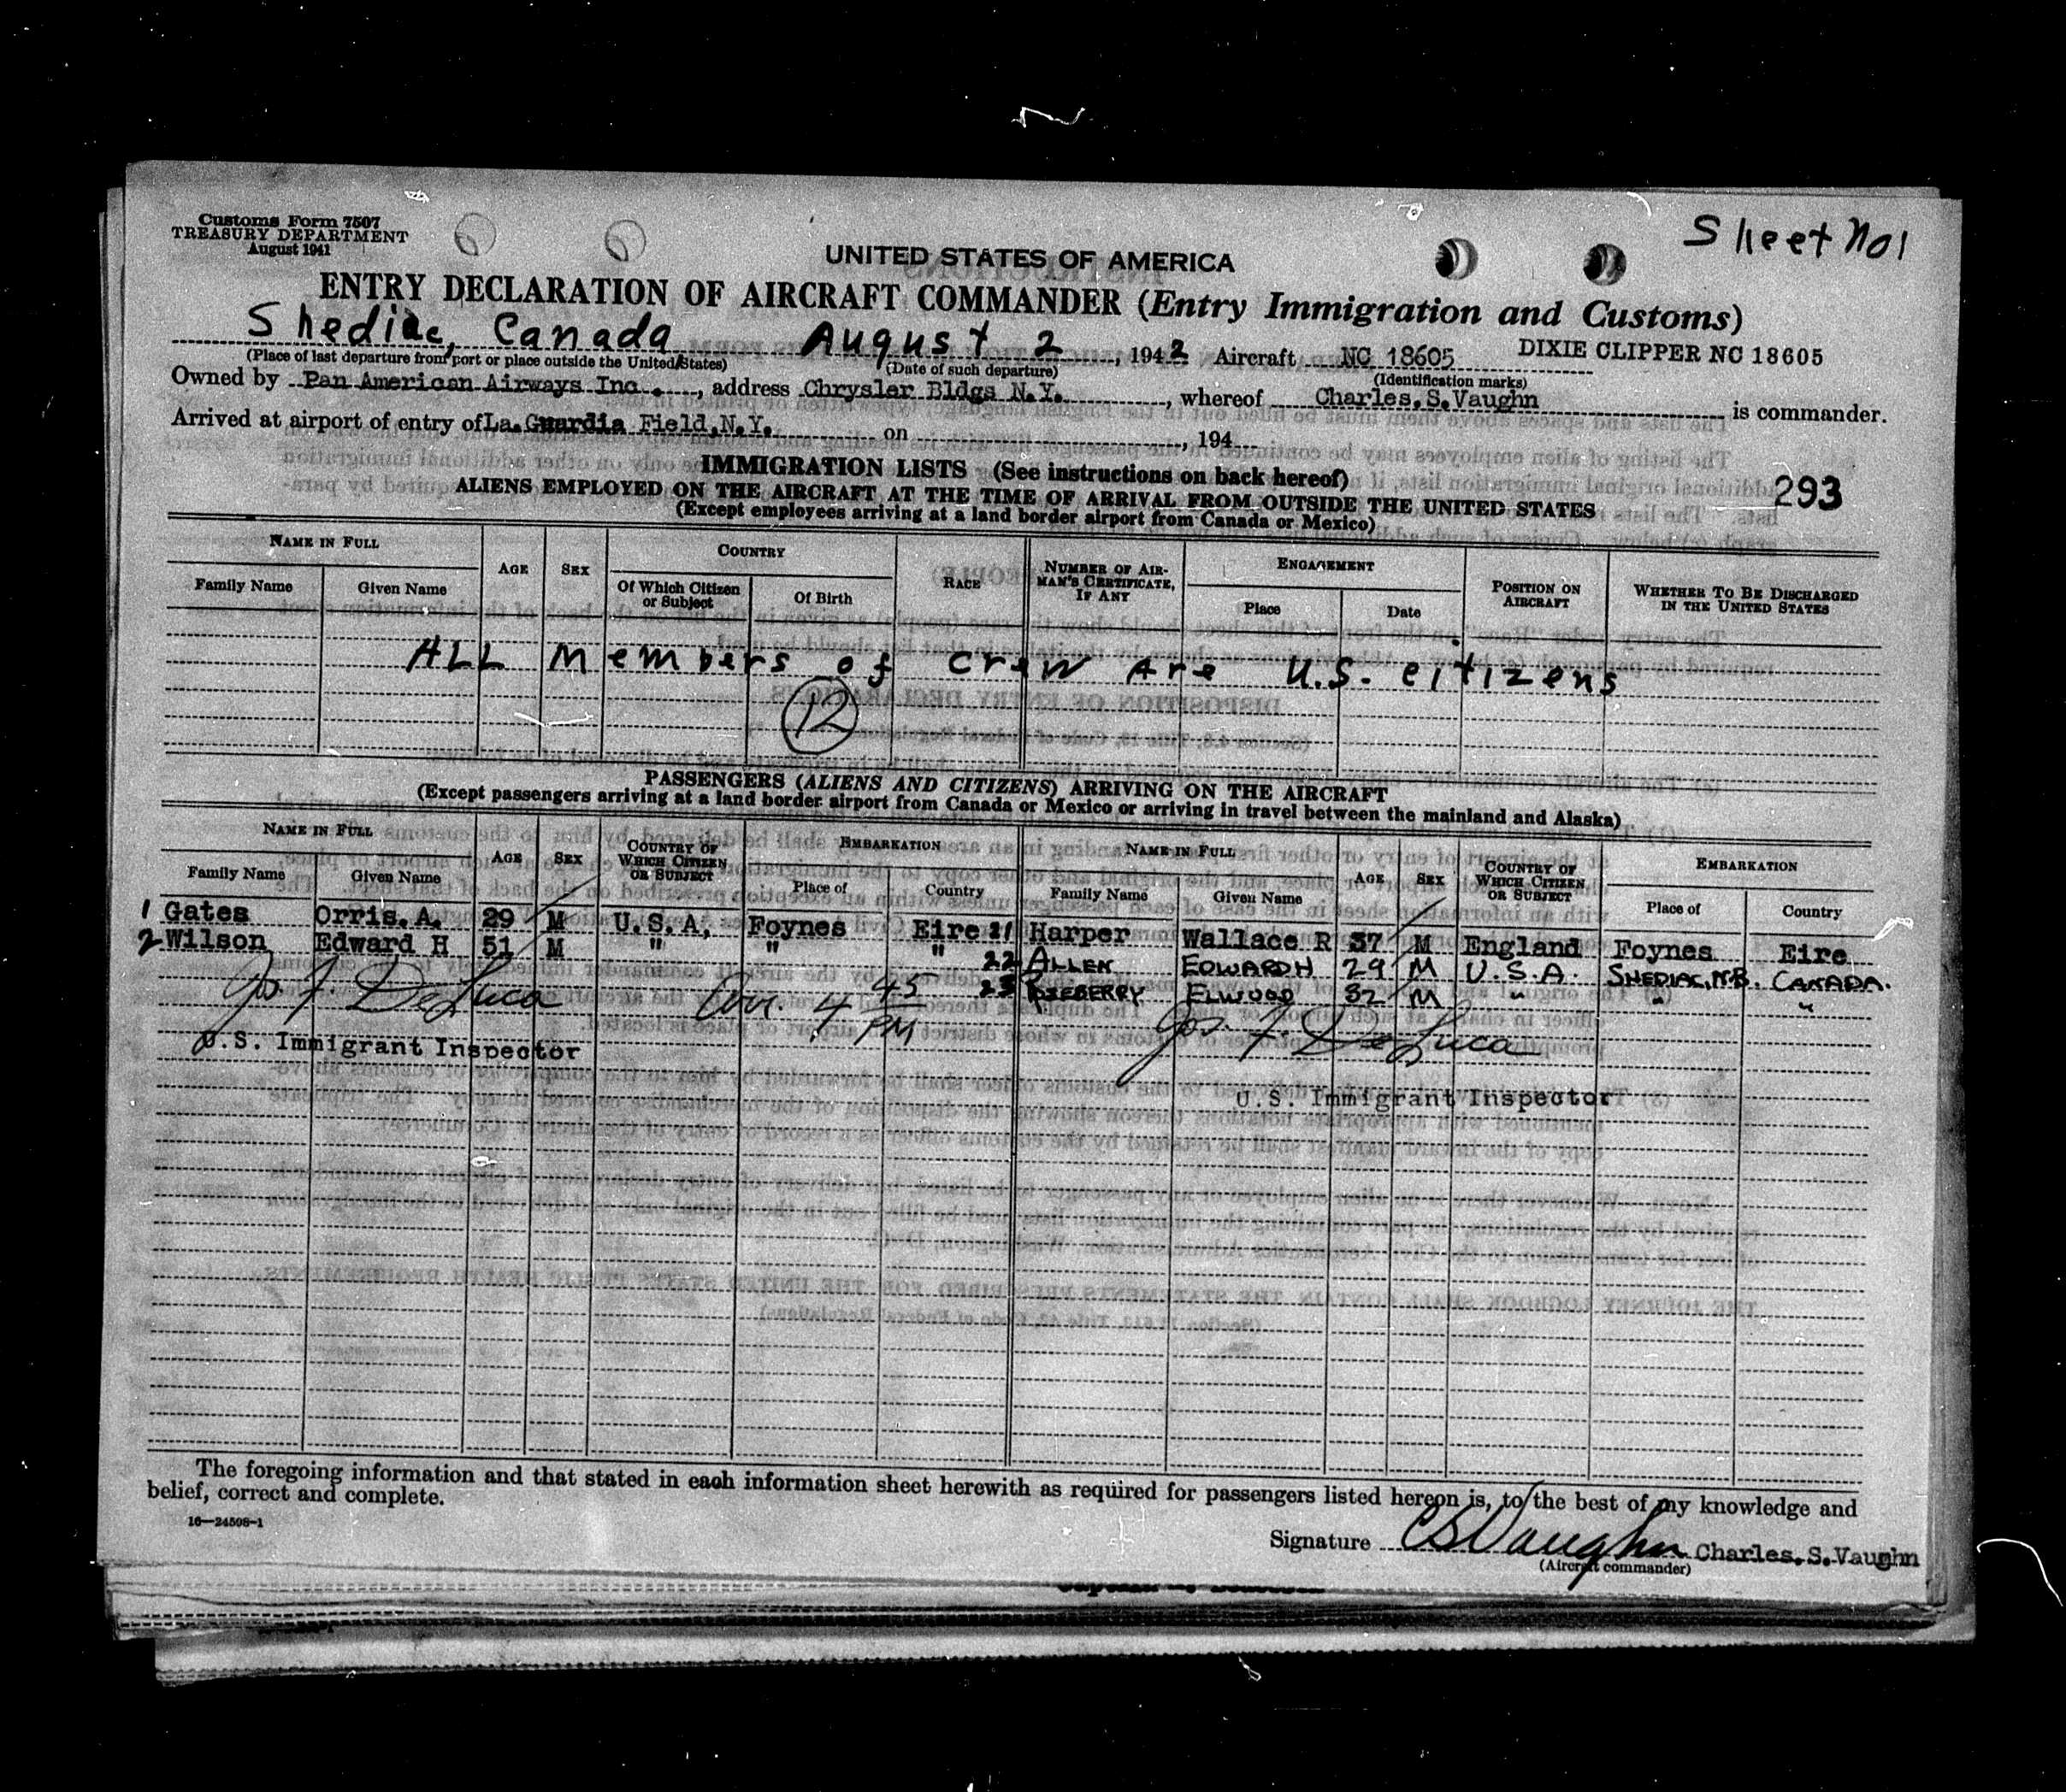 Customs Form 7507
TREASURY DEPARTMENT
August 1941
Sheet No 1
UNITED STATES OF AMERICA
ENTRY DECLARATION OF AIRCRAFT COMMANDER (Entry Immigration and Customs)
Shediac, Canada August 2, 1942 Aircraft NC 18605 DIXIE CLIPPER NC 18605
(Place of last departure from port or place outside the United States) (Date of such departure) (Identification marks)
Owned by Pan American Airways Inc., address Chrysler Bldgs N.Y., whereof Charles.S.Vaughn is commander.
Arrived at airport of entry of La.Guardia Field,N.Y. on , 194
IMMIGRATION LISTS (See instructions on back hereof)
293
ALIENS EMPLOYED ON THE AIRCRAFT AT THE TIME OF ARRIVAL FROM OUTSIDE THE UNITED STATES
(Except employees arriving at a land border airport from Canada or Mexico)
NAME IN FULL AGE SEX COUNTRY RACE NUMBER OF AIRMAN'S CERTIFICATE, IF ANY ENGAGEMENT POSITION ON AIRCRAFT WHETHER TO BE DISCHARGED IN THE UNITED STATES
Family Name Given Name Of Which Citizen or Subject Of Birth Place Date
ALL Members of crew Are U.S. citizens
12
PASSENGERS (ALIENS AND CITIZENS) ARRIVING ON THE AIRCRAFT
(Except passengers arriving at a land border airport from Canada or Mexico or arriving in travel between the mainland and Alaska)
NAME IN FULL AGE SEX COUNTRY OF WHICH CITIZEN OR SUBJECT EMBARKATION NAME IN FULL AGE SEX COUNTRY OF WHICH CITIZEN OR SUBJECT EMBARKATION
Family Name Given Name Place of Country Family Name Given Name Place of Country
1 Gates Orris.A. 29 M U.S.A. Foynes Eire 21 Harper Wallace R 37 M England Foynes Eire
2 Wilson Edward H 51 M " " " 22 ALLEN EDWARD H 29 M U.S.A. SHEDIAC, N.B. CANADA.
23 ELWOOD 32 M " " "
Jos. F. DeLuca Arr. 4 45 PM Jos. F. DeLuca
U.S. Immigrant Inspector
U.S. Immigrant Inspector
The foregoing information and that stated in each information sheet herewith as required for passengers listed hereon is, to the best of my knowledge and
belief, correct and complete.
16—24508-1
Signature CSVaughn Charles.S.Vaughn
(Aircraft commander)